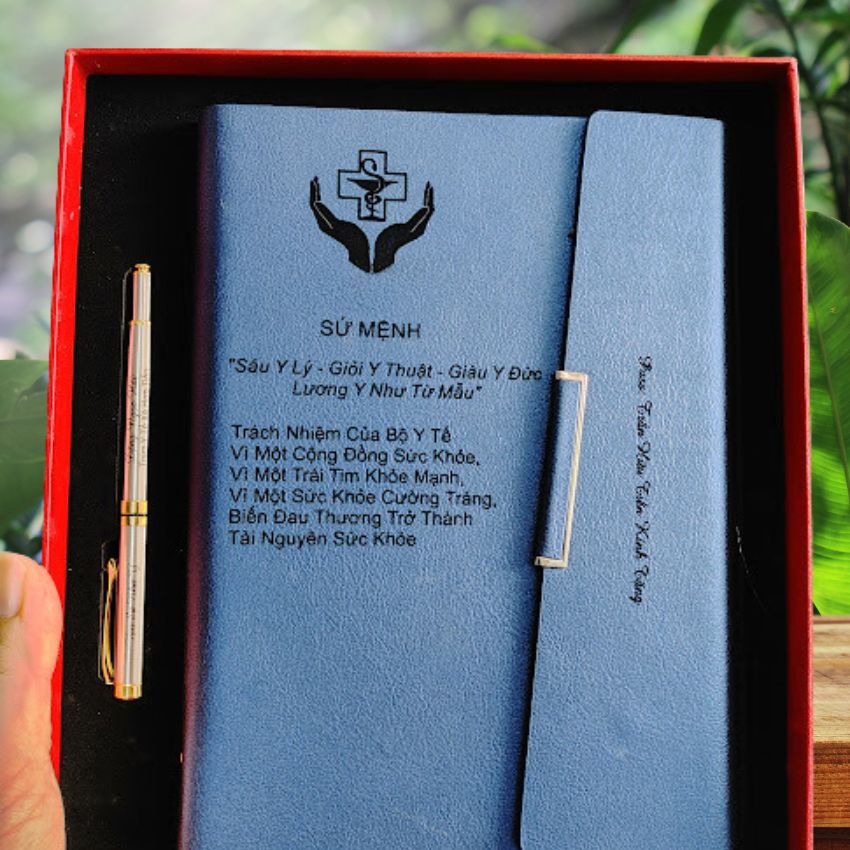 SỨ MỆNH
"Sáu Y Lý - Giỏi Y Thuật - Giàu Y Đức
Lương Y Như Từ Mẫu"
Trách Nhiệm Của Bộ Y Tế
Vì Một Cộng Đồng Sức Khỏe,
Vì Một Trái Tim Khỏe Mạnh,
Vì Một Sức Khỏe Cường Tráng,
Biến Đau Thương Trở Thành
Tài Nguyên Sức Khỏe
Trần Hữu Tiến Kính Tặng